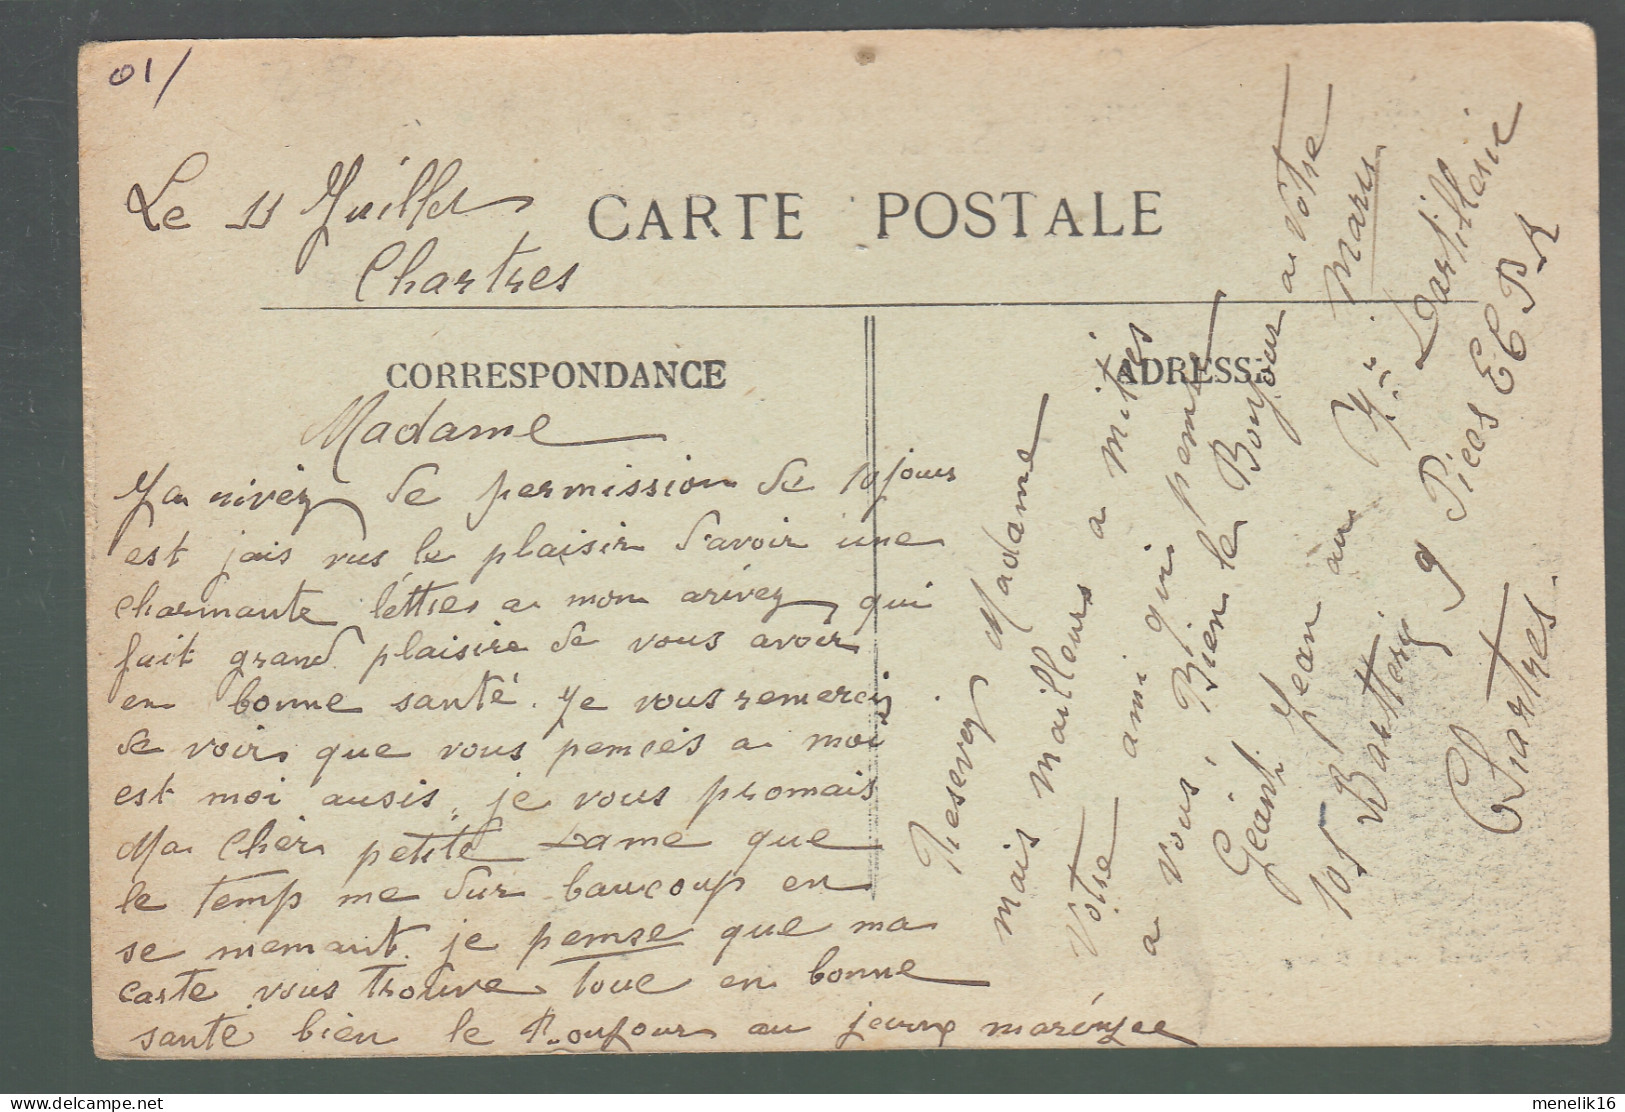 01/
Le 11 Juillet
Chartres
CARTE POSTALE
CORRESPONDANCE
ADRESSE
Madame
J'a rivez de permission de 10 jours
est jais vus le plaisir d'avoir une
charmante lèttres a mon arivez, qui
fait grand plaisire de vous avoir
en bonne santé. Je vous remerciz
de voir que vous pencés a moi
est moi ausis, je vous promais
Ma Chèr petite Dame que
le temp me dur baucoup en
se memant. je pense que ma
carte vous trouve toue en bonne
santé bien le Boujour au jeune mariézee
Resevez Madame
mais mailleurs a mitiés
Votre ami qui pense
a vous, Bien le Bonjour a Votre Maris
Géant. Jean au
105 Batterie 9 Pieces ECPR
Dartillerie
Chartres.
menelik16